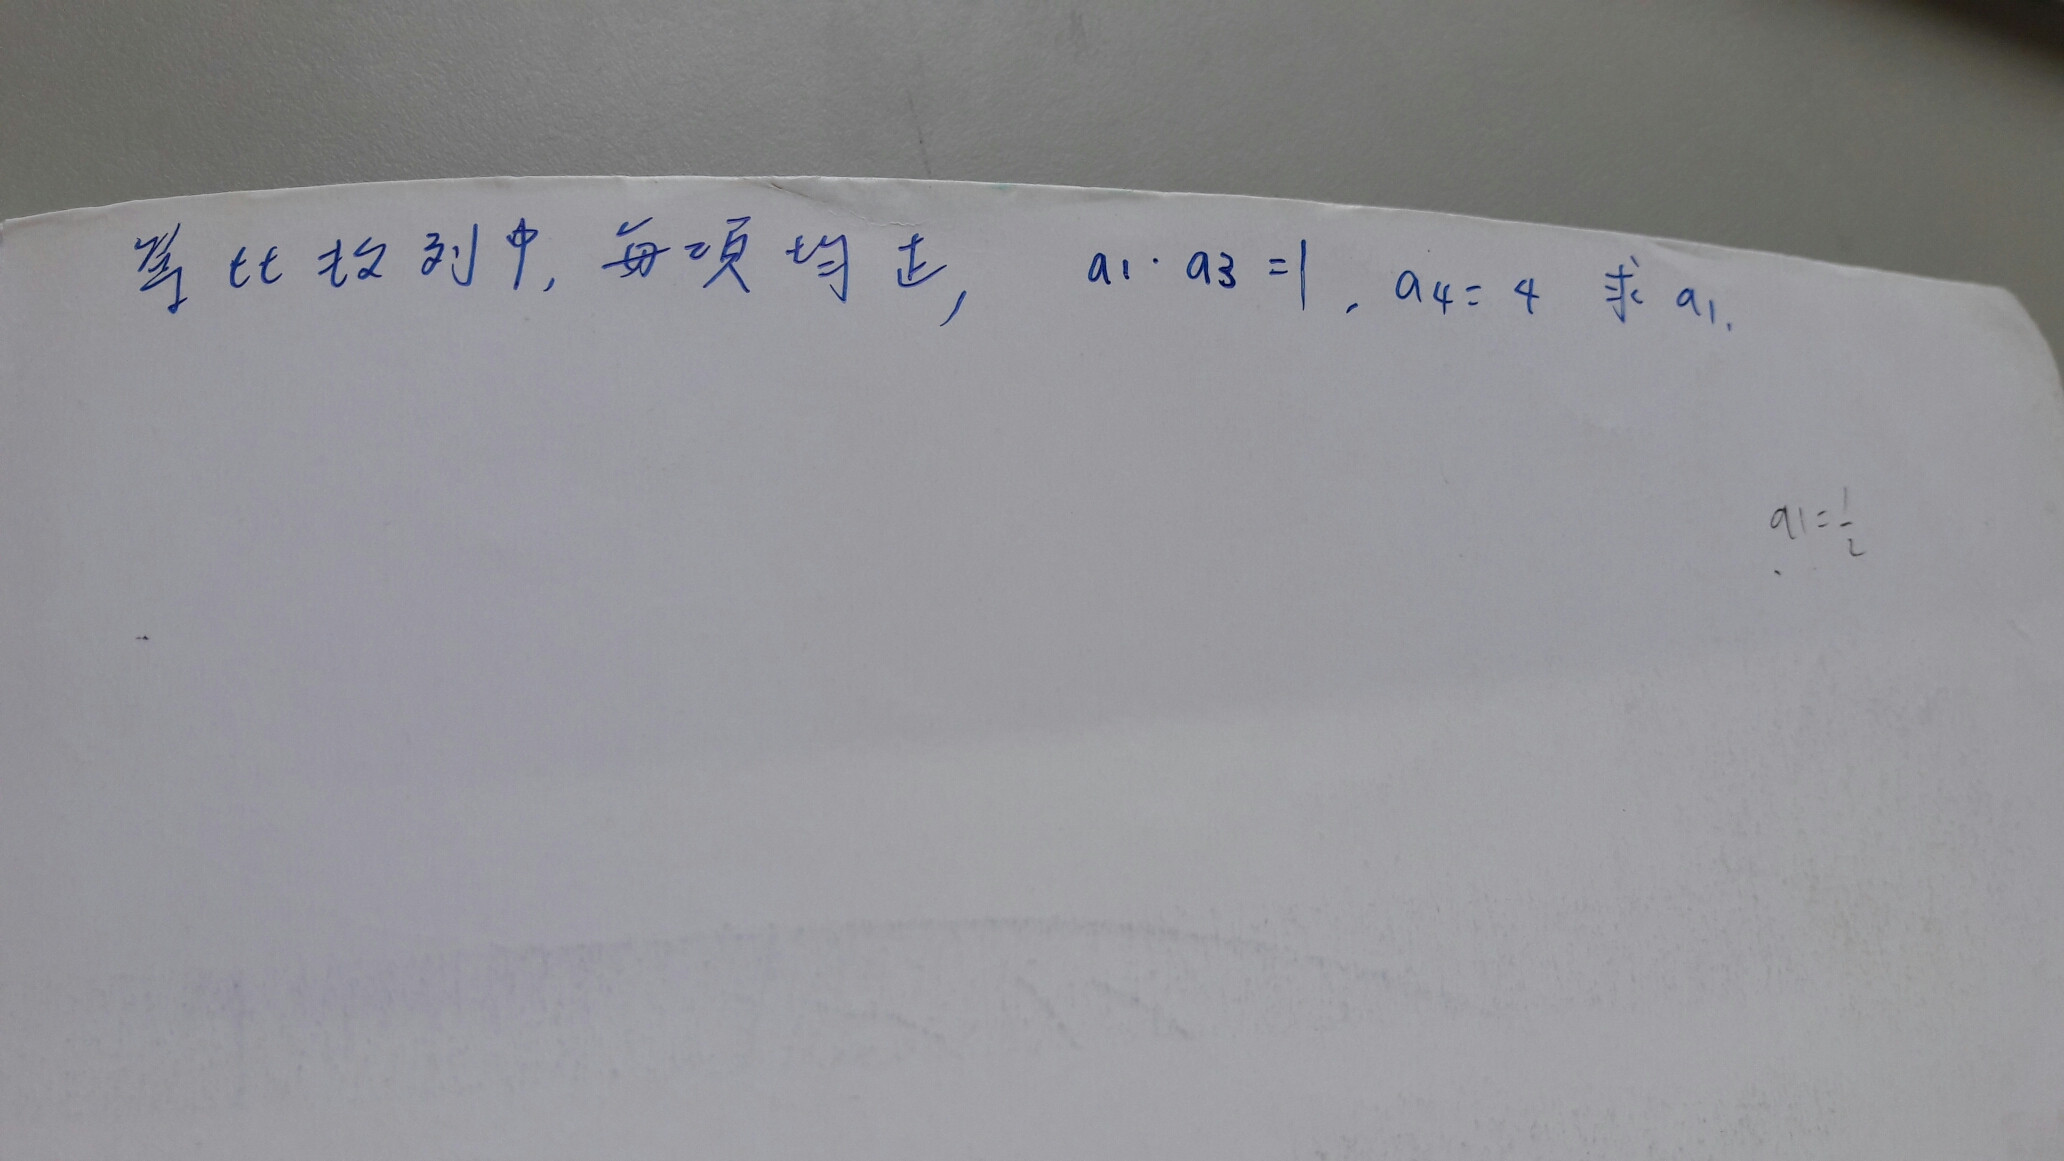 等比数列中, 每项均正, a1·a3=1, a4=4 求 a1.
a1=1/2